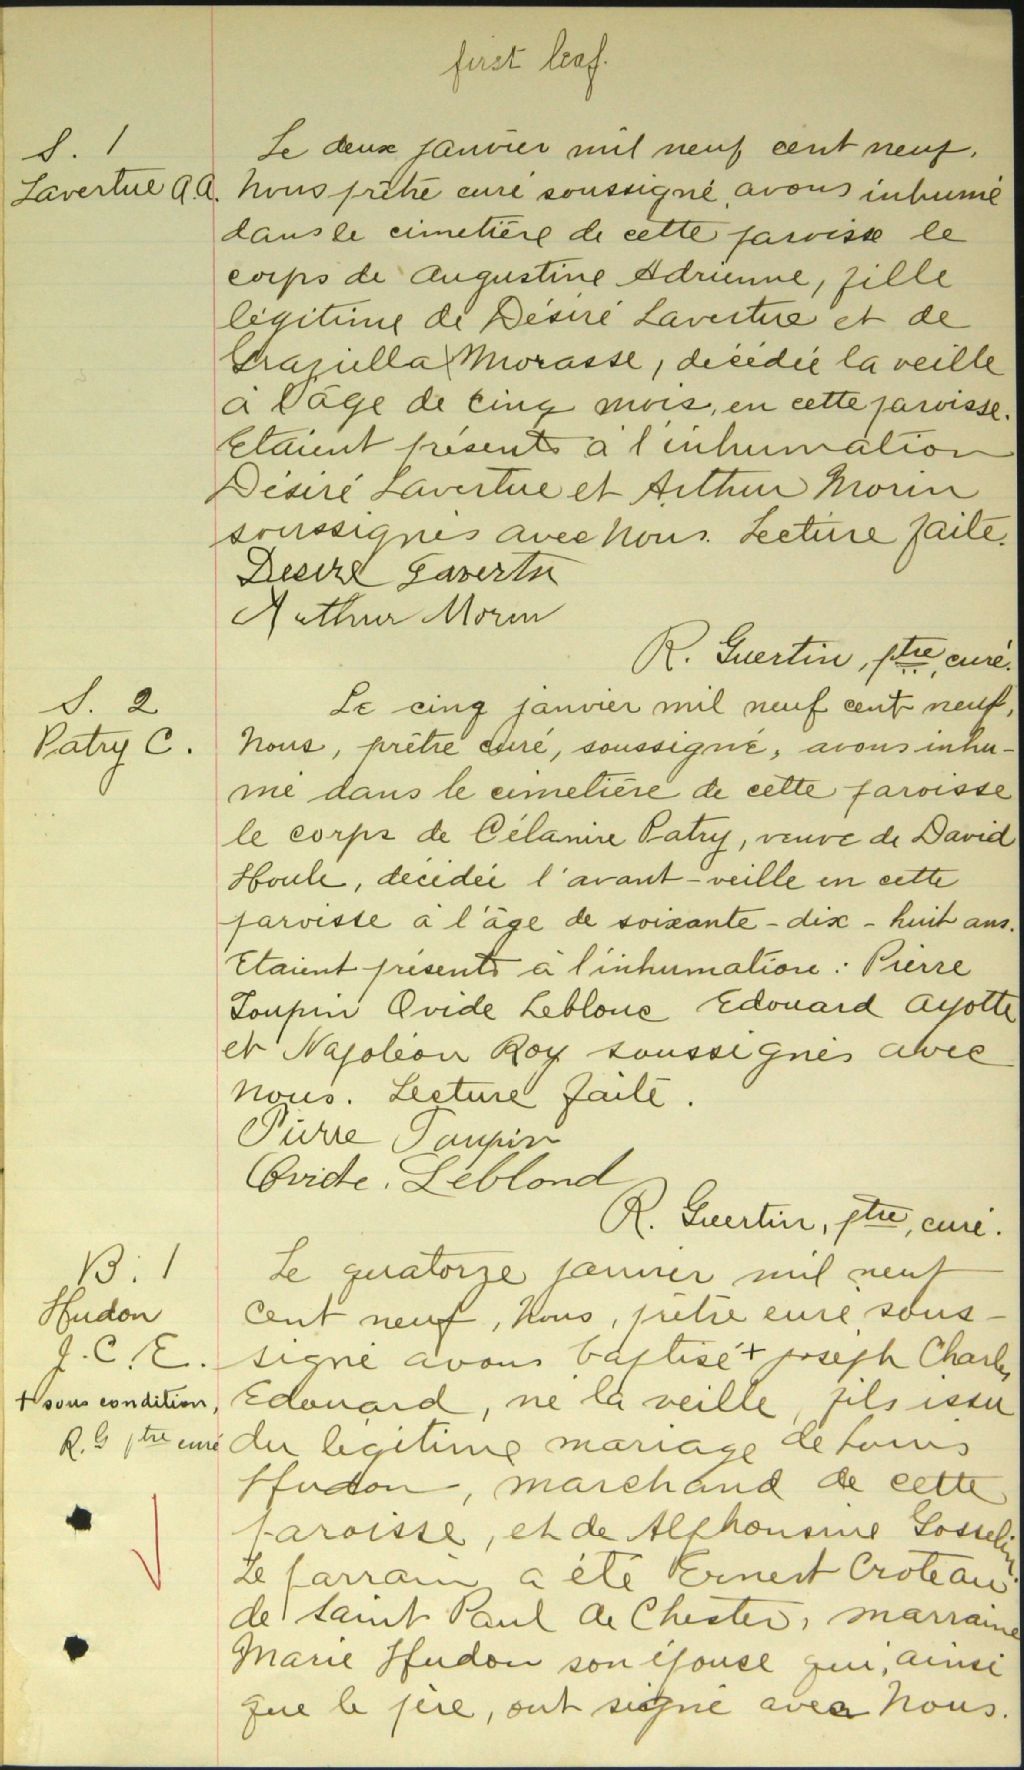 first leaf.
S. 1
Lavertue A.A.
Le deux janvier mil neuf cent neuf,
Nous prêtre curé soussigné, avons inhumé
dans le cimetière de cette paroisse le
corps de Augustine Adrienne, fille
légitime de Désiré Lavertue et de
Graziella Morasse, décédée la veille
à l'âge de cinq mois, en cette paroisse.
Etaient présents à l'inhumation
Désiré Lavertue et Arthur Morin
soussignés avec Nous. Lecture faite.
Desire Laverttu
Arthur Morin
R. Guertin, ptre, curé.
S. 2
Patry C.
Le cinq janvier mil neuf cent neuf,
Nous, prêtre curé, soussigné, avons inhu-
mé dans le cimetière de cette paroisse
le corps de Célanire Patry, veuve de David
Houle, décédée l'avant-veille en cette
paroisse à l'âge de soixante-dix-huit ans.
Etaient présents à l'inhumation: Pierre
Toupin Ovide Leblonc Edouard Ayotte
et Napoléon Roy soussignés avec
Nous. Lecture faite.
Pierre Toupin
Ovide. Leblond
R. Guertin, ptre, curé.
B. 1
Hudon
J. C. E.
+ sous condition,
R. G ptre curé
Le quatorze janvier mil neuf
cent neuf, Nous, prêtre curé sous-
signé avons baptisé + Joseph Charles
Edouard, né la veille, fils issu
du légitime mariage de Louis
Hudon, marchand de cette
paroisse, et de Alphonsine Gosselin.
Le parrain a été Ernest Croteau
de Saint Paul de Chester, marraine
Marie Hudon son épouse qui, ainsi
que le père, ont signé avec Nous.